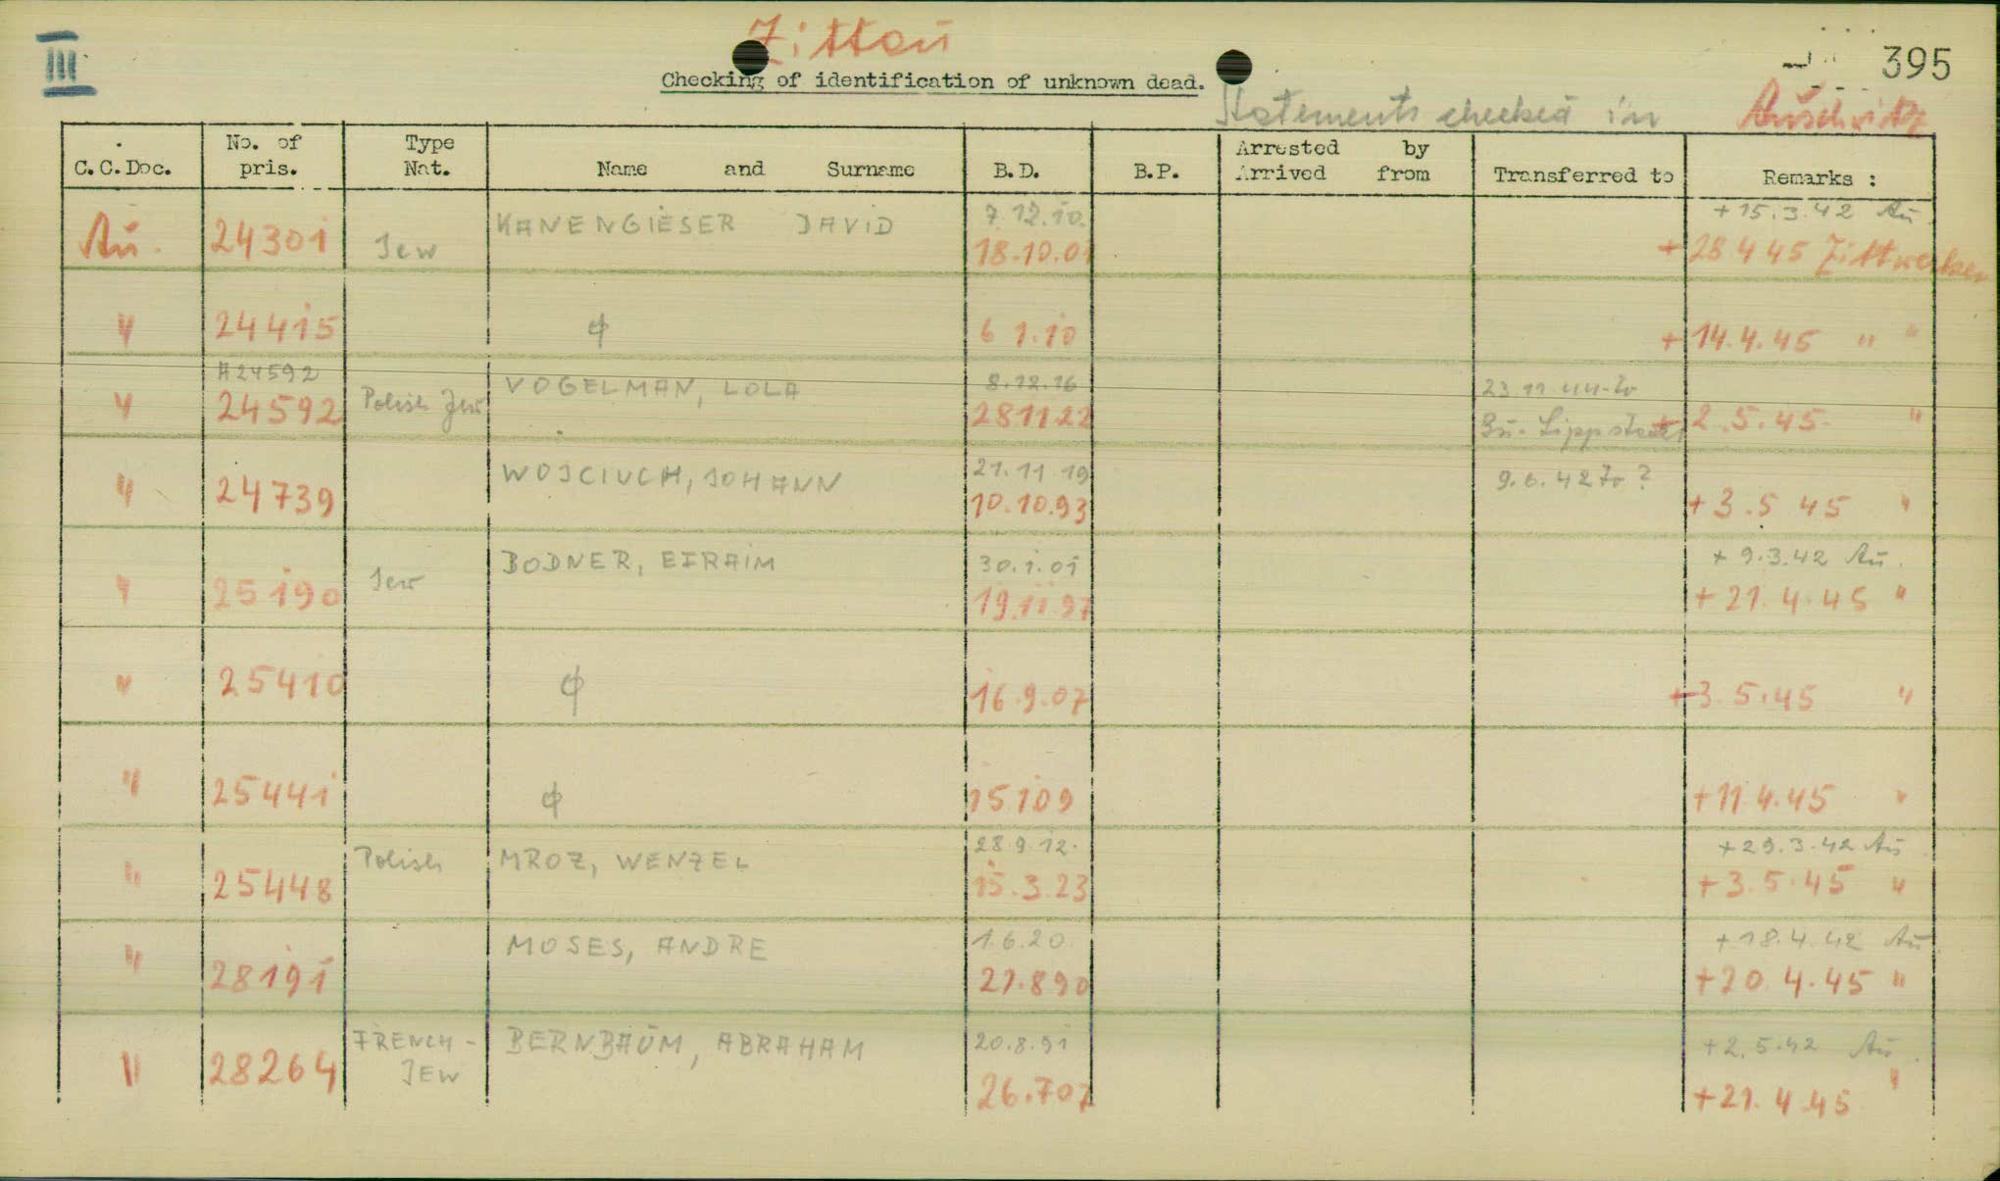 III
Zittau
395
Checking of identification of unknown dead.
Statements checked in Auschwitz
C.C.Doc. No. of pris. Type Nat. Name and Surname B.D. B.P. Arrested by Arrived from Transferred to Remarks :
KANENGIESER DAVID 7.12.10. +15.3.42 Au.
Au. 24301 Jew 18.10.01 +28 4 45 Zittwerken
" 24415 ϕ 6 1.10 +14.4.45 " "
A24592 VOGELMAN, LOLA 8.12.16 23.11.44 - To
" 24592 Polish Jew 28 11 22 Bu. Lippstadt +2.5.45. "
WOJCIUCH, JOHANN 21.11 19 9.6.42 To ?
" 24739 10.10.93 +3.5 45 "
BODNER, EFRAIM 30.1.01 +9.3.42 Au.
" 25190 Jew 19.11.97 +21.4.45 "
" 25410 ϕ 16.9.07 +3.5.45 "
" 25441 ϕ 15 1 09 +11.4.45 "
Polish MROZ, WENZEL 28.9.12. +29.3.42 Au
" 25448 15.3.23 +3.5.45 "
MOSES, ANDRE 1.6.20. +18.4.42 Au
" 28191 27.8 90 +20.4.45 "
FRENCH - JEW BERNBAUM, ABRAHAM 20.8.91 +2.5.42 Au.
" 28264 26.7 07 +21.4.45 "